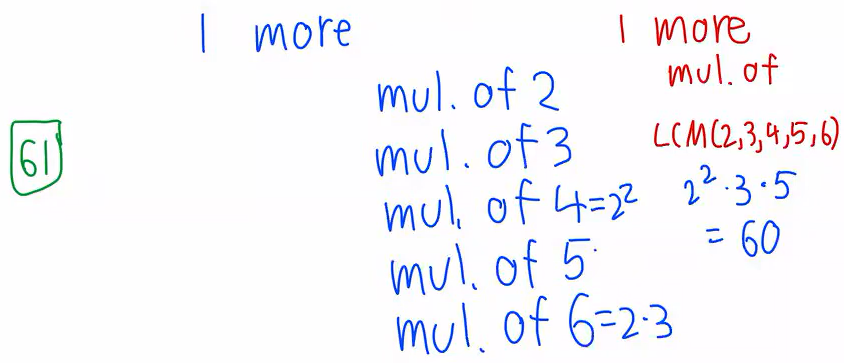 1 more
mul. of 2
mul. of 3
mul. of 4=2²
mul. of 5
mul. of 6=2·3
1 more
mul. of
LCM(2,3,4,5,6)
2²·3·5
= 60
61